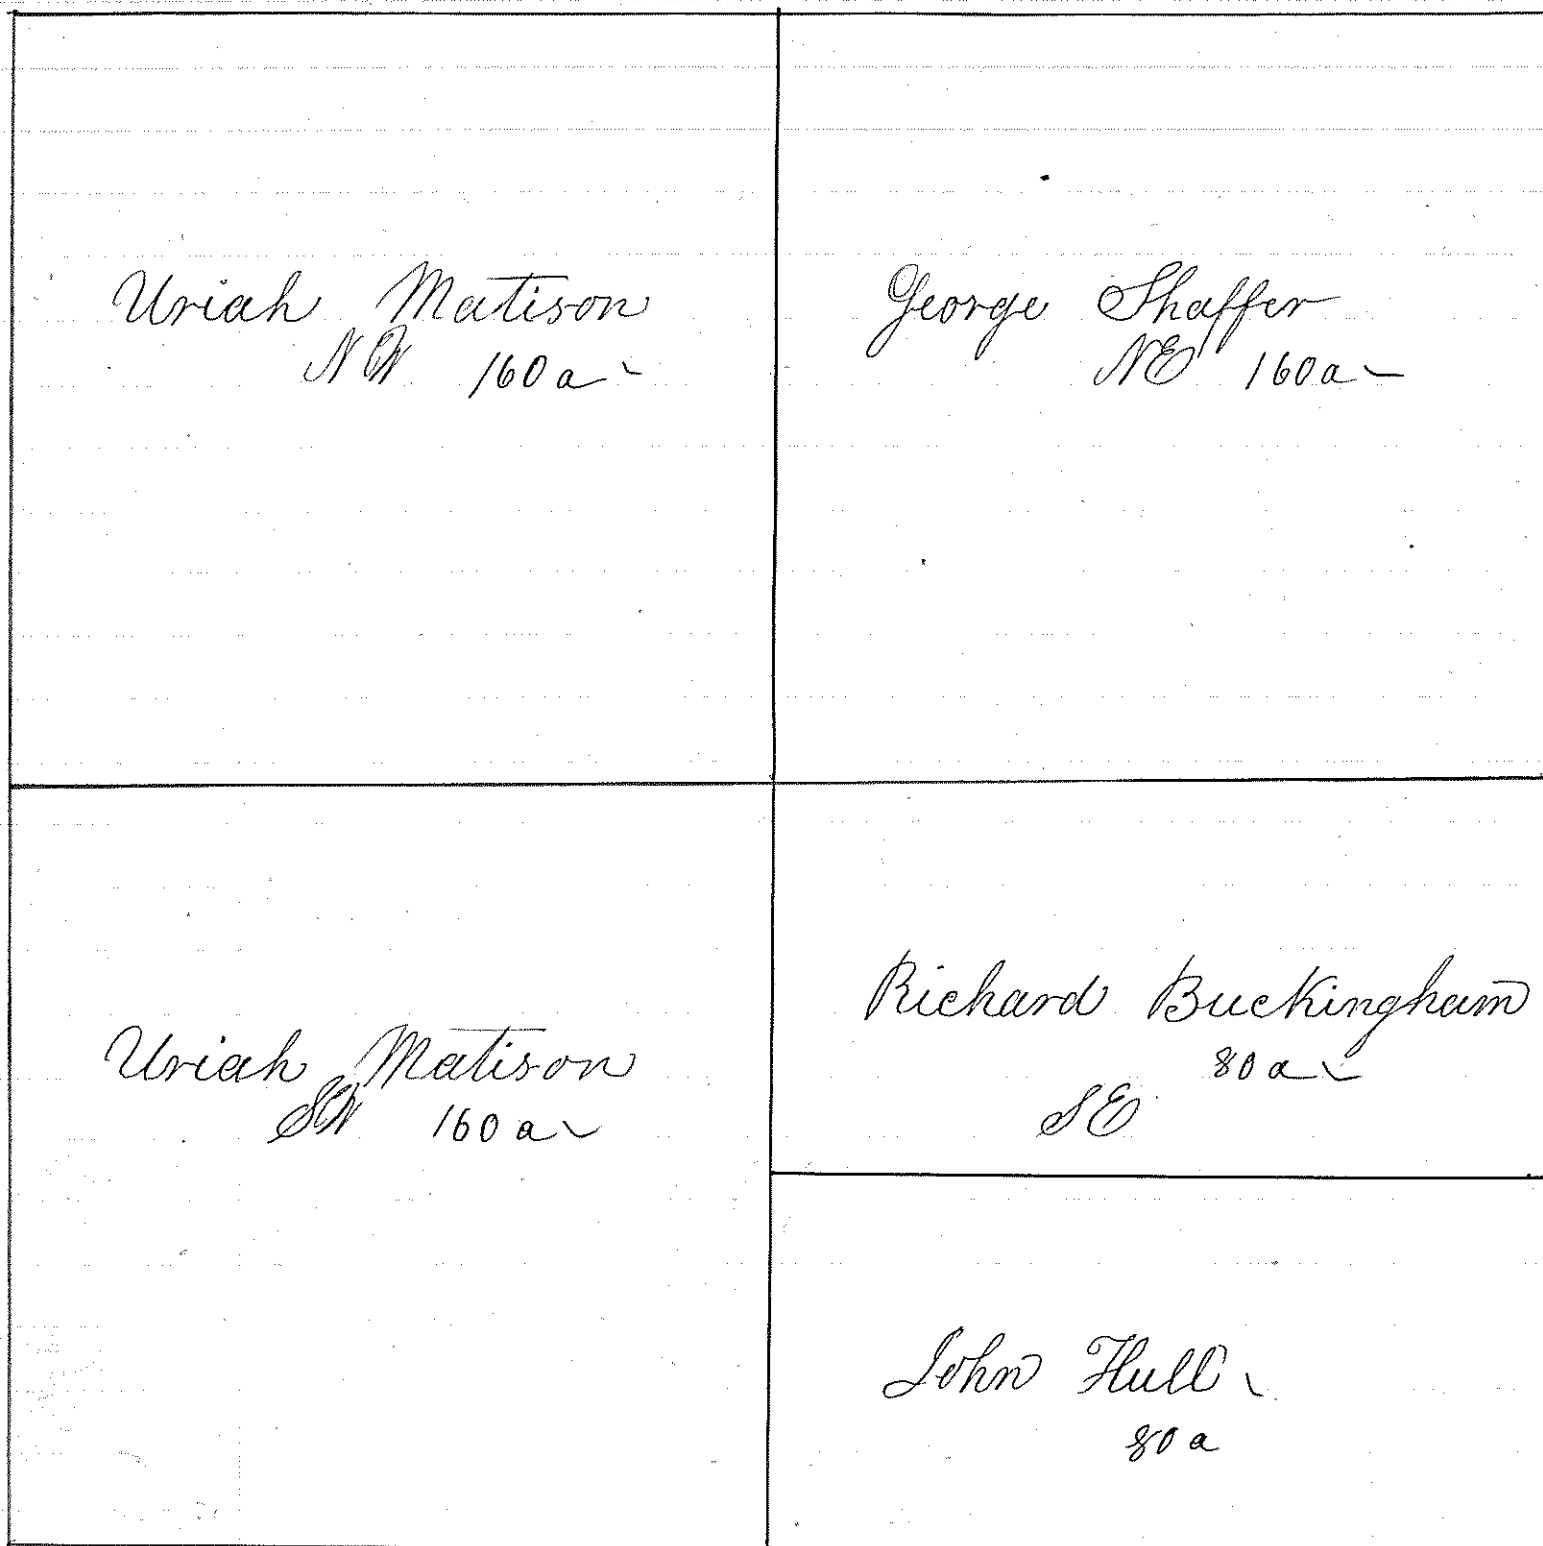 Uriah Matison
NW 160 a
George Shaffer
NE 160 a
Uriah Matison
SW 160 a
Richard Buckingham
80 a
SE
John Hull
80 a